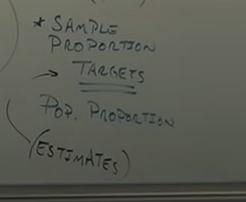 * SAMPLE
PROPORTION
→ TARGETS
POP. PROPORTION
(ESTIMATES)